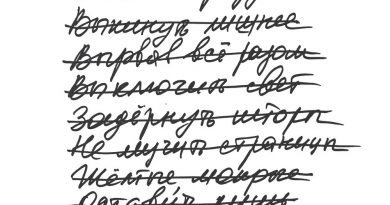 Выкинуть лишнее
Вырвав всё разом
Выключить свет
Задёрнуть шторы
Не мучить страницы
Жёлтые мокрые
Оставить